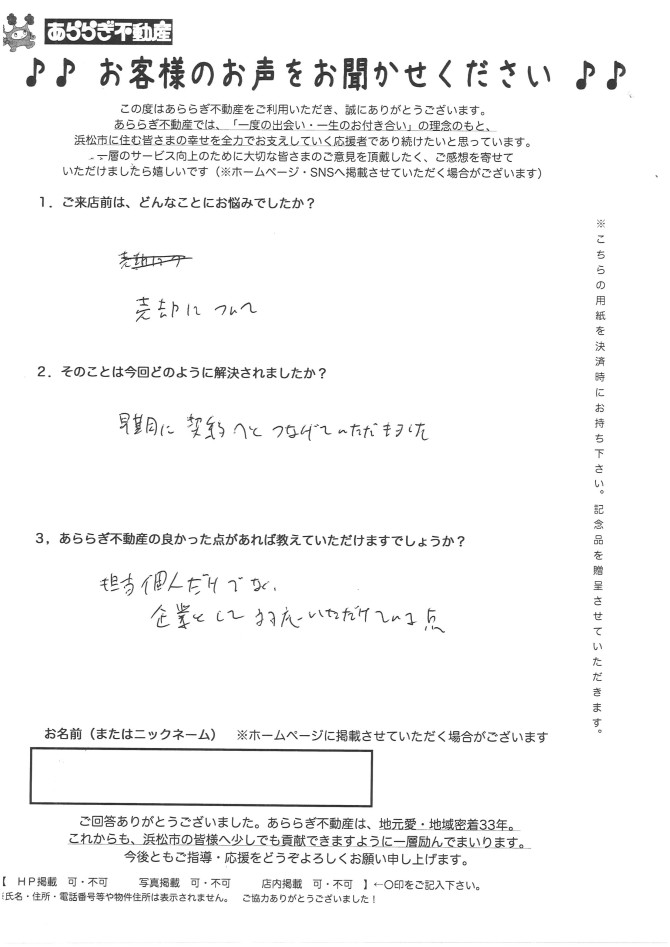 あららぎ不動産
♪♪ お客様のお声をお聞かせください ♪♪
この度はあららぎ不動産をご利用いただき、誠にありがとうございます。
あららぎ不動産では、「一度の出会い・一生のお付き合い」の理念のもと、
浜松市に住む皆さまの幸せを全力でお支えしていく応援者であり続けたいと思っています。
一層のサービス向上のために大切な皆さまのご意見を頂戴したく、ご感想を寄せて
いただけましたら嬉しいです（※ホームページ・SNSへ掲載させていただく場合がございます）
１．ご来店前は、どんなことにお悩みでしたか？
売却について
２．そのことは今回どのように解決されましたか？
早期に契約へとつなげていただきました
３，あららぎ不動産の良かった点があれば教えていただけますでしょうか？
担当個人だけでなく、
企業として対応いただけている点
※こちらの用紙を決済時にお持ち下さい。記念品を贈呈させていただきます。
お名前（またはニックネーム）　※ホームページに掲載させていただく場合がございます
ご回答ありがとうございました。あららぎ不動産は、地元愛・地域密着33年。
これからも、浜松市の皆様へ少しでも貢献できますように一層励んでまいります。
今後ともご指導・応援をどうぞよろしくお願い申し上げます。
【　ＨＰ掲載　可・不可　　写真掲載　可・不可　　店内掲載　可・不可　】←〇印をご記入下さい。
※氏名・住所・電話番号等や物件住所は表示されません。　ご協力ありがとうございました！